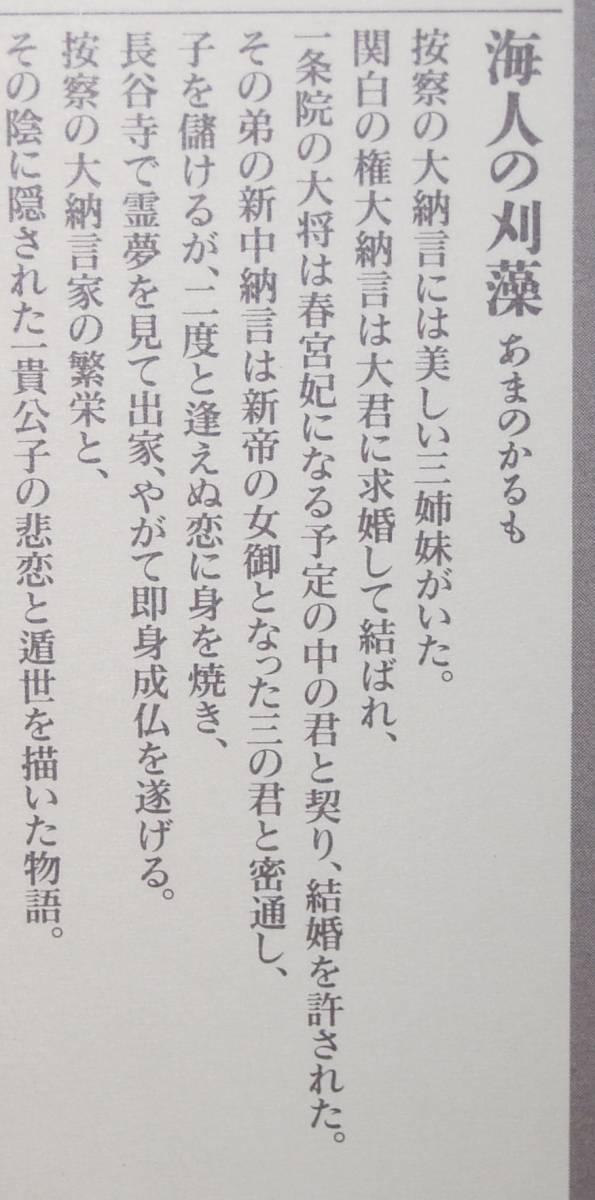 海人の刈藻 あまのかるも
按察の大納言には美しい三姉妹がいた。
関白の権大納言は大君に求婚して結ばれ、
一条院の大将は春宮妃になる予定の中の君と契り、結婚を許された。
その弟の新中納言は新帝の女御となった三の君と密通し、
子を儲けるが、二度と逢えぬ恋に身を焼き、
長谷寺で霊夢を見て出家、やがて即身成仏を遂げる。
按察の大納言家の繁栄と、
その陰に隠された一貴公子の悲恋と遁世を描いた物語。